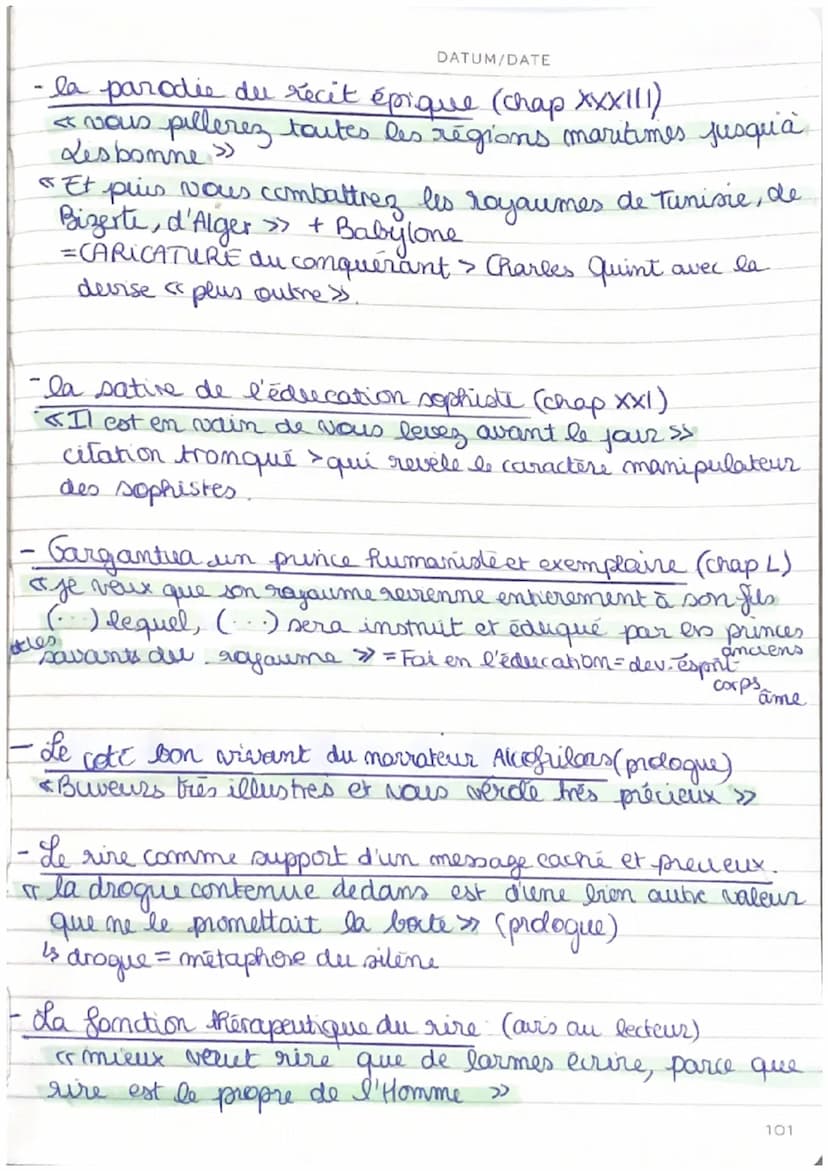 DATUM/DATE
- la parodie du récit épique (chap XXXIII)
« vous pillerez toutes les régions maritimes jusqu'à
Lisbonne »
« Et puis vous combattrez les royaumes de Tunisie, de
Bizerte, d'Alger » + Babylone
= CARICATURE du conquérant > Charles Quint avec la
devise « plus outre ».
- la satire de l'éducation sophiste (chap XXI)
« Il est en vain de vous levez avant le jour »
citation tronqué > qui revèle le caractère manipulateur
des sophistes.
- Gargantua un prince humaniste et exemplaire (chap L)
« je veux que son royaume revienne entierement à son fils
(...) lequel, (...) sera instruit et éduqué par les princes
anciens
et les savants du royaume » = Foi en l'éducation = dev. esprit
corps
âme
- Le coté bon vivant du narrateur Alcofribas (prologue)
« Buveurs très illustres et vous vérolé très précieux »
- Le rire comme support d'un message caché et precieux.
« la drogue contenue dedans est d'une bien autre valeur
que ne le promettait la boite » (prologue)
↳ drogue = métaphore du silène
- La fonction thérapeutique du rire : (avis au lecteur)
« mieux veut rire que de larmes écrire, parce que
rire est le propre de l'Homme »
101